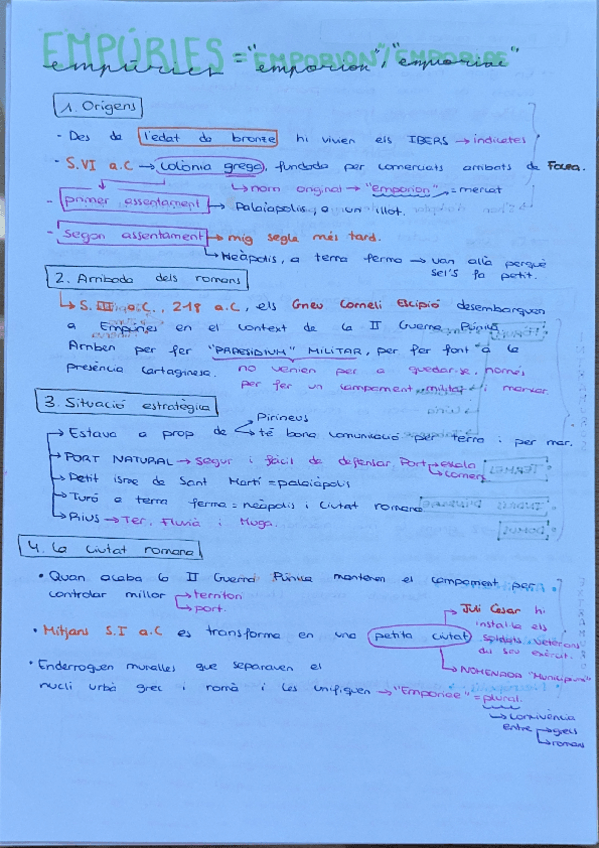 EMPÚRIES = "EMPORION", "EMPORIAE"
empúries "emporion", "emporiae"
1. Orígens
· Des de l'edat de bronze hi vivien els IBERS → indicetes
· S.VI a.C → colònia grega, fundada per comerciants arribats de Focea.
↳ nom original → "emporion" = mercat
- primer assentament → Palaiapolis, a un illot.
- segon assentament → mig segle més tard.
↳ Neàpolis, a terra ferma → van allà perquè
se'ls fa petit.
2. Arribada dels romans
↳ S. III a.C., 218 a.C, els Gneu Corneli Escipió desembarquen
a Empúries en el context de la II Guerra Púnica
Arriben per fer "PRAESIDIUM" MILITAR, per fer font a la
presència cartaginesa. no venien per a quedar-se, només
per fer un campament militar i marxar.
3. Situació estratègica
→ Estava a prop de → Pirineus
→ té bona comunicació per terra i per mar.
→ PORT NATURAL → segur i fàcil de defensar. Port → escala
→ comerç
→ Petit isme de Sant Martí = palaiàpolis
→ Turó a terra ferma = neàpolis i ciutat romana
→ Rius → Ter, Fluvià i Muga.
4. La ciutat romana
• Quan acaba la II Guerra Púnica mantenen el campament per
controlar millor → territori
→ port.
• Mitjans S.I a.C es transforma en una petita ciutat
→ Juli Cesar hi
instal·la els
soldats veterans
du seu exèrcit.
→ NOMENADA "Municipium"
• Enderroquen muralles que separaven el
nucli urbà grec i romà i les unifiquen → "Emporiae" = plural.
↳ convivència
entre → grecs
→ romans